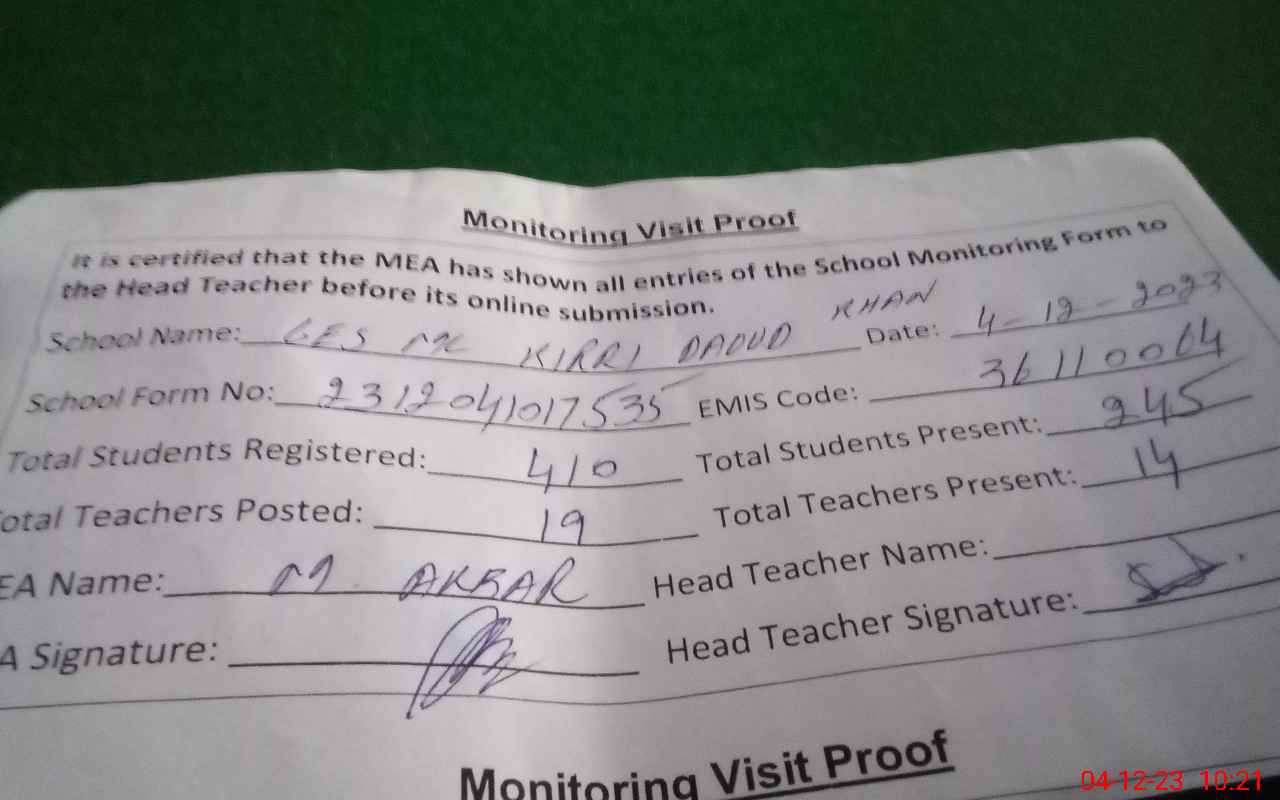 Monitoring Visit Proof
It is certified that the MEA has shown all entries of the School Monitoring Form to
the Head Teacher before its online submission.
School Name: GES MC KIRRI DAOUD KHAN Date: 4-12-2023
School Form No: 2312041017535 EMIS Code: 36110064
Total Students Registered: 410 Total Students Present: 245
otal Teachers Posted: 19 Total Teachers Present: 14
EA Name: M. AKBAR Head Teacher Name:
A Signature: Head Teacher Signature:
Monitoring Visit Proof
04-12-23 10:21